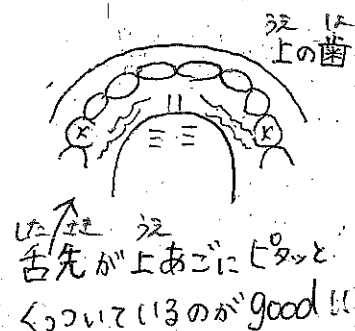 うえ は
上の歯
x x
した さき うえ
舌先が上あごにピタッと
くっついているのがgood!!